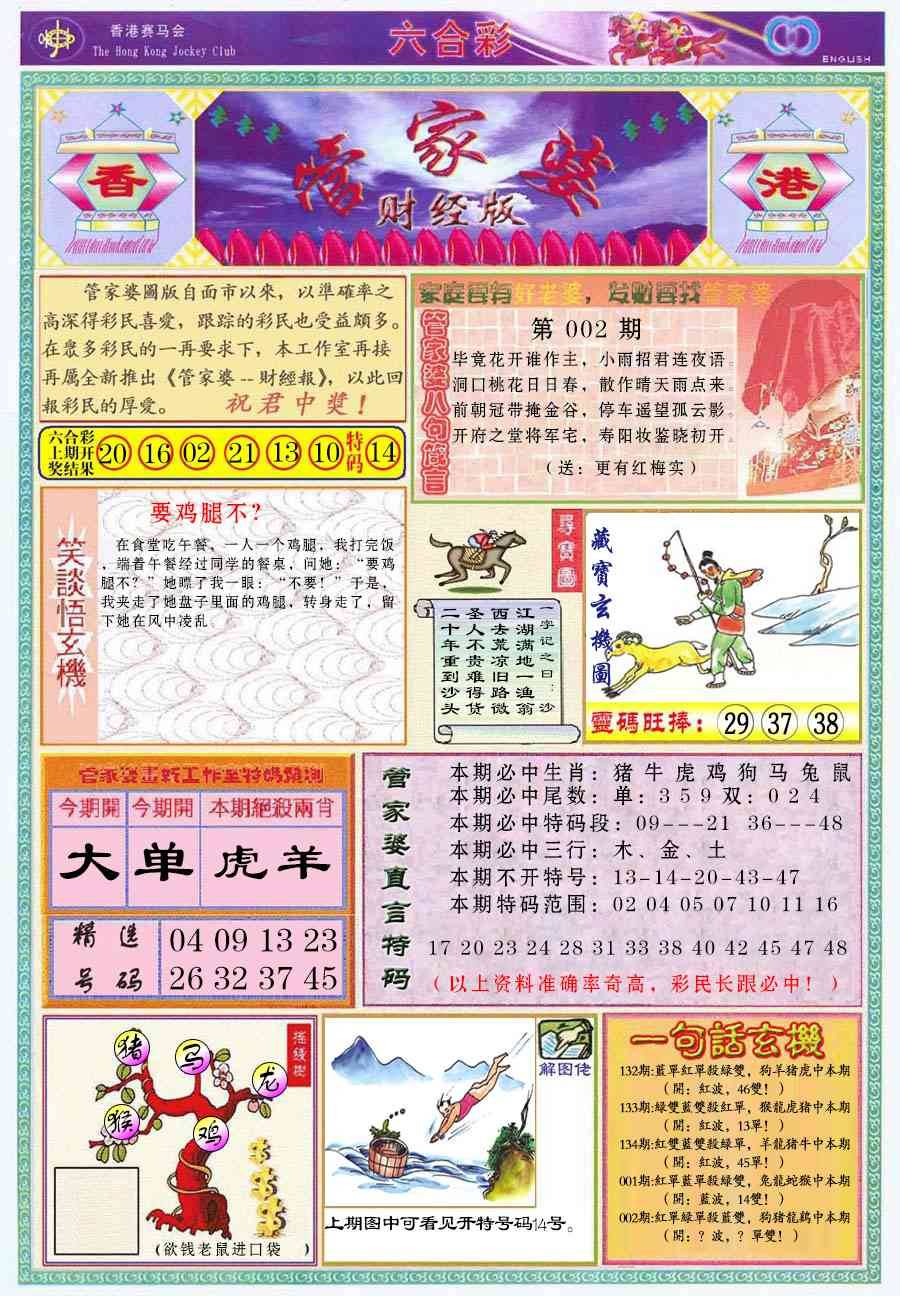 香港赛马会
The Hong Kong Jockey Club
六合彩
ENGLISH
香
管家婆
财经版
港
管家婆圖版自面市以來，以準確率之
高深得彩民喜愛，跟踪的彩民也受益頗多。
在眾多彩民的一再要求下，本工作室再接
再厲全新推出《管家婆--財經報》，以此回
報彩民的厚愛。
祝君中奖！
六合彩
上期开
奖结果
20 16 02 21 13 10
特码
14
家庭要有好老婆，发财要找管家婆
管家婆八句箴言
第 002 期
毕竟花开谁作主，小雨招君连夜语。
洞口桃花日日春，散作晴天雨点来。
前朝冠带掩金谷，停车遥望孤云影。
开府之堂将军宅，寿阳妆鉴晓初开。
（送：更有红梅实）
笑談悟玄機
要鸡腿不？
在食堂吃午餐，一人一个鸡腿，我打完饭
，端着午餐经过同学的餐桌，问她：“要鸡
腿不？”她瞟了我一眼：“不要！”于是，
我夹走了她盘子里面的鸡腿，转身走了，留
下她在风中凌乱。
尋寶圖
一字记之曰：沙
江湖满地一渔翁
西去荒凉旧路微
圣人不贵难得货
二十年重到沙头
藏寶玄機圖
靈碼旺捧：29 37 38
管家婆畫新工作室特碼預測
今期開
今期開
本期絕殺兩肖
大
单
虎羊
精选
号码
04 09 13 23
26 32 37 45
管家婆直言特码
本期必中生肖：猪 牛 虎 鸡 狗 马 兔 鼠
本期必中尾数：单：3 5 9 双：0 2 4
本期必中特码段：09---21 36---48
本期必中三行：木、金、土
本期不开特号：13-14-20-43-47
本期特码范围：02 04 05 07 10 11 16
17 20 23 24 28 31 33 38 40 42 45 47 48
（以上资料准确率奇高，彩民长跟必中！）
摇钱樹
猪
马
龙
猴
鸡
（欲钱老鼠进口袋）
解图佬
上期图中可看见开特号码14号。
一句話玄機
132期:藍單紅單殺綠雙，狗羊猪虎中本期
（開：紅波，46雙！）
133期:綠雙藍雙殺紅單，猴龍虎猪中本期
（開：紅波，13單！）
134期:紅雙藍雙殺綠單，羊龍猪牛中本期
（開：紅波，45單！）
001期:紅單藍單殺綠雙，兔龍蛇猴中本期
（開：藍波，14雙！）
002期:紅單綠單殺藍雙，狗猪龍鷄中本期
（開：？波，？單雙！）